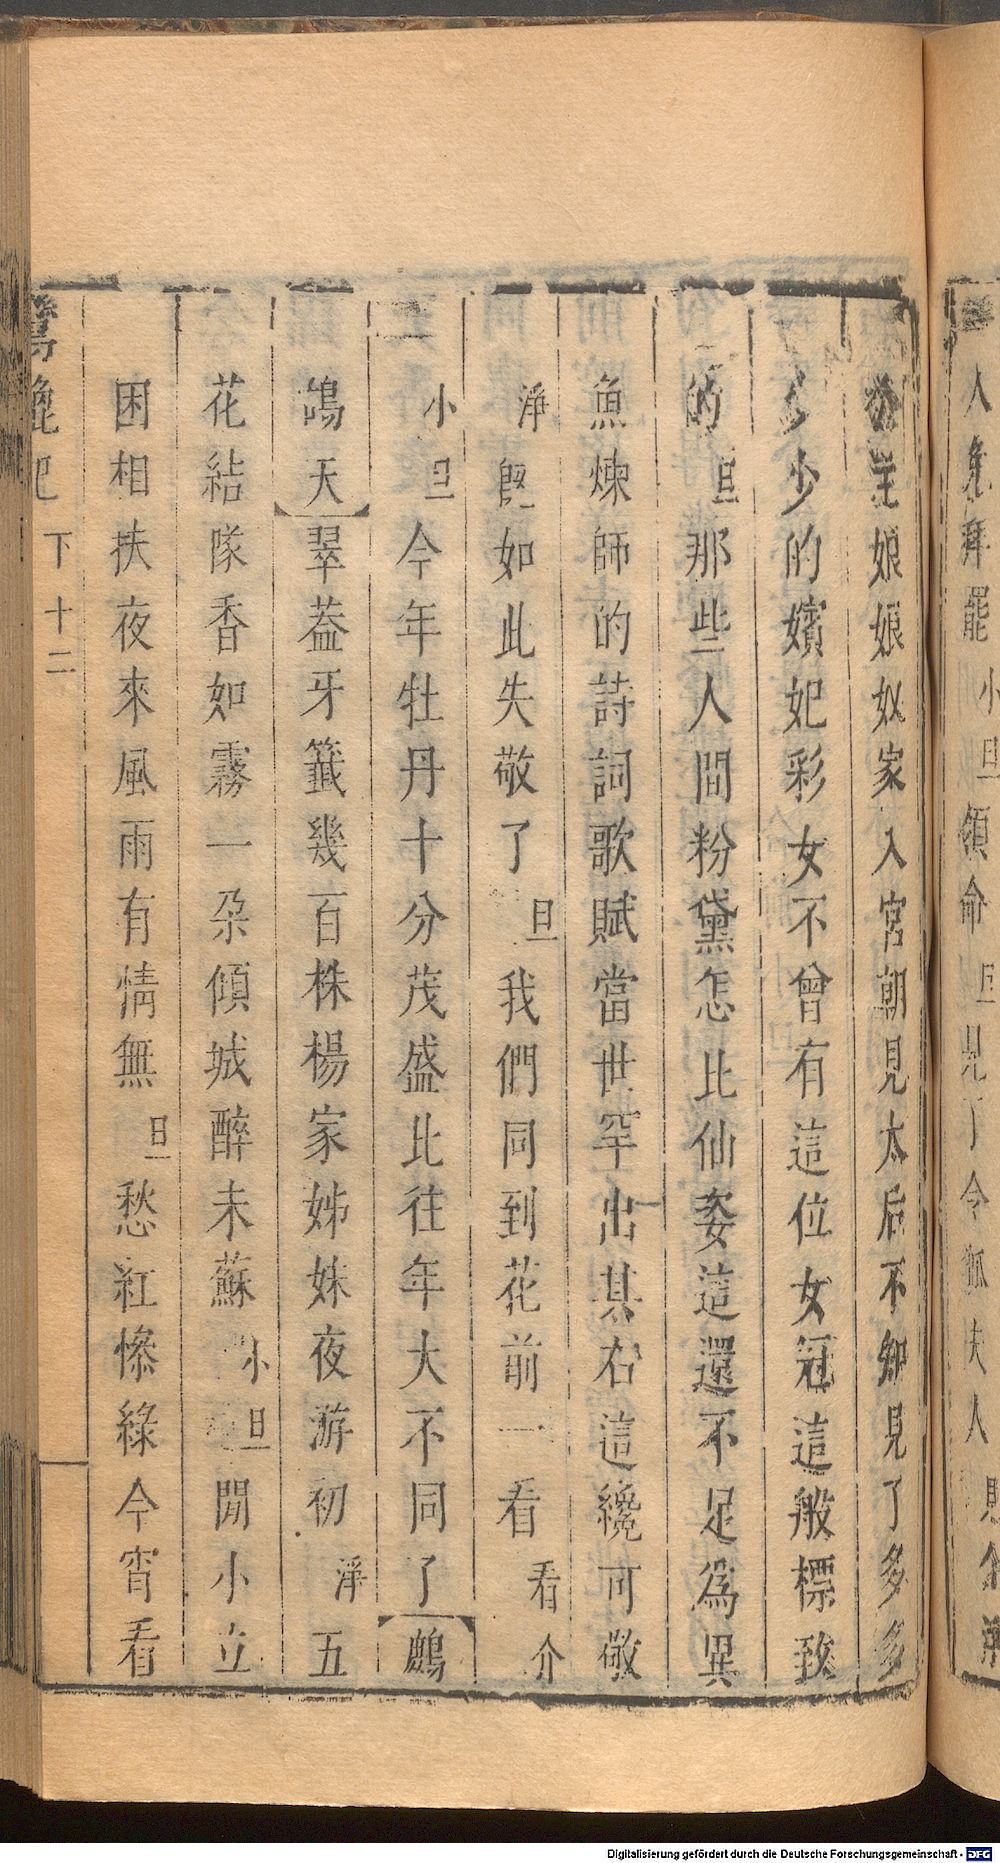 人免拜罷小旦領命旦見了令狐夫人
公主娘娘奴家入宮朝見太后不知見了多多
多少的嬪妃彩女不曾有這位女冠這般標致
的旦那些人間粉黛怎比仙姿這還不足爲異
魚煉師的詩詞歌賦當世罕出其右這纔可敬
淨旣如此失敬了旦我們同到花前一看看介
小旦今年牡丹十分茂盛比往年大不同了【鷓
鴣天】翠葢牙籤幾百株楊家姊妹夜游初淨五
花結隊香如霧一朶傾城醉未蘇小旦閒小立
困相扶夜來風雨有情無旦愁紅慘綠今宵看
鸞鎞記 下 十二
Digitalisierung gefördert durch die Deutsche Forschungsgemeinschaft - DFG